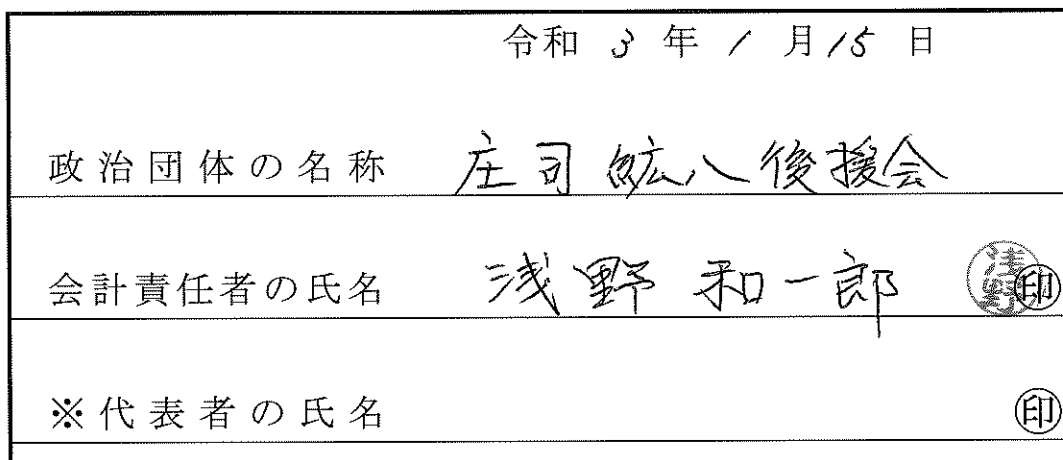 令和 3 年 1 月 15 日
政治団体の名称 庄司鉱八後援会
会計責任者の氏名 浅野 和一郎 浅野 ㊞
※代表者の氏名 ㊞